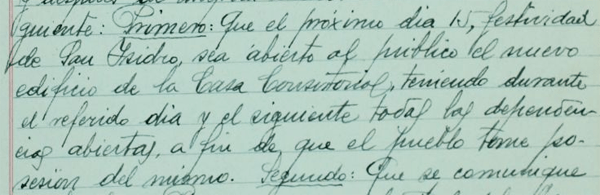 guiente: Primero: Que el próximo dia 15, festividad
de San Isidro, sea abierto al público el nuevo
edificio de la Casa Consistorial, teniendo durante
el referido dia y el siguiente todas las dependen-
cias abiertas, a fin de que el pueblo tome po-
sesion del mismo. Segundo: Que se comunique